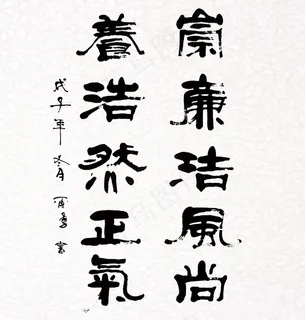 崇廉洁風尚
養浩然正氣
戊子年冬月